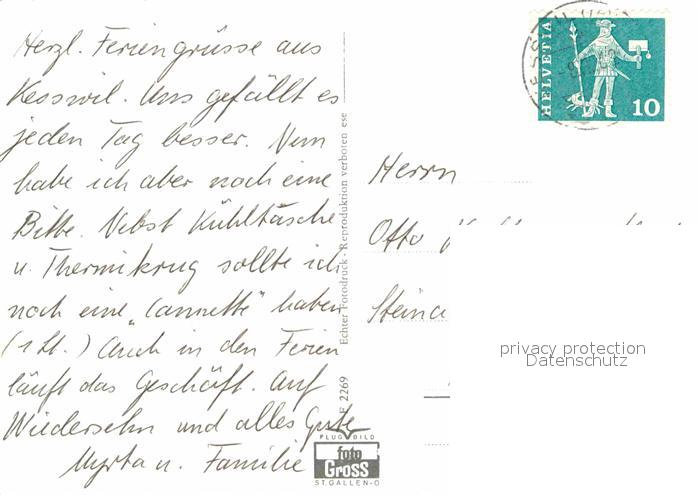 Herzl. Feriengrüsse aus
Kesswil. Uns gefällt es
jeden Tag besser. Nun
habe ich aber noch eine
Bitte. Nebst Kühltasche
u. Thermikrug sollte ich
noch eine "Cannette" haben
(1 Lt.) Auch in den Ferien
läuft das Geschäft. Auf
Wiedersehn und alles Gute
Myrta u. Familie
Echter Fotodruck - Reproduktion verboten ese
F 2269
FLUGBILD
foto
Gross
ST. GALLEN-O
HELVETIA
10
Herrn
Otto
privacy protection
Datenschutz